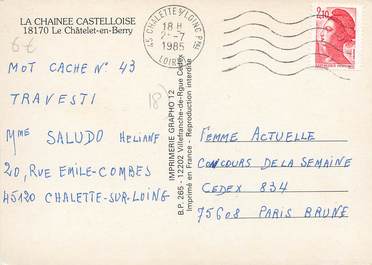 LA CHAINEE CASTELLOISE
18170 Le Châtelet-en-Berry
6€
45 CHALETTE S/LOING PPAL
18 H
2-7
1985
LOIRET
2,10
MOT CACHE N° 43
TRAVESTI
18
Mme SALUDO HELIANE
20, RUE EMILE-COMBES
45120 CHALETTE-SUR-LOING
IMPRIMERIE GRAPHO 12
B.P. 265 - 12202 Villefranche-de-Rgue Cedex
Imprimé en France - Reproduction interdite
FEMME ACTUELLE
CONCOURS DE LA SEMAINE
CEDEX 834
75608 PARIS BRUNE